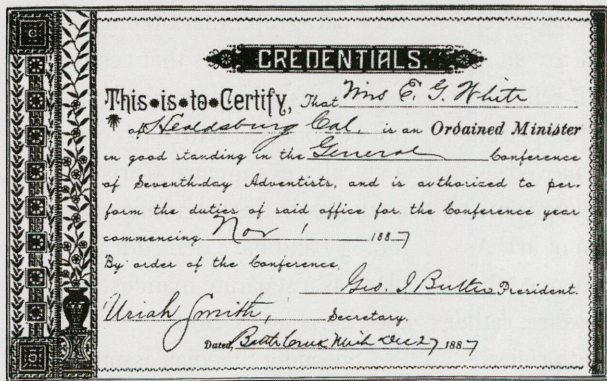 CREDENTIALS.
This is to Certify, That Mrs E. G. White
of Healdsburg Cal, is an Ordained Minister
in good standing in the General Conference
of Seventh-day Adventists, and is authorized to per-
form the duties of said office for the Conference year
commencing Nov 1 1887
By order of the Conference,
Geo. I Butler President.
Uriah Smith, Secretary.
Dated, Battle Creek, Mich Dec 27 1887